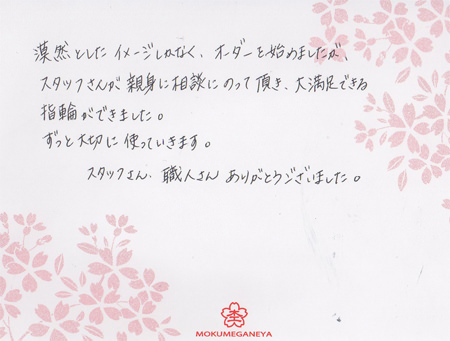 漠然としたイメージしかなく、オーダーを始めましたが、
スタッフさんが親身に相談にのって頂き、大満足できる
指輪ができました。
ずっと大切に使っていきます。
スタッフさん、職人さん ありがとうございました。
MOKUMEGANEYA